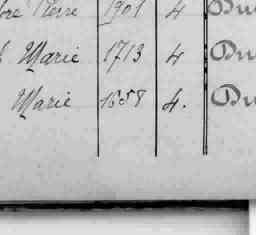 bre Pierre 1901 4 Du
Marie 1713 4 Du
Marie 1658 4. Du